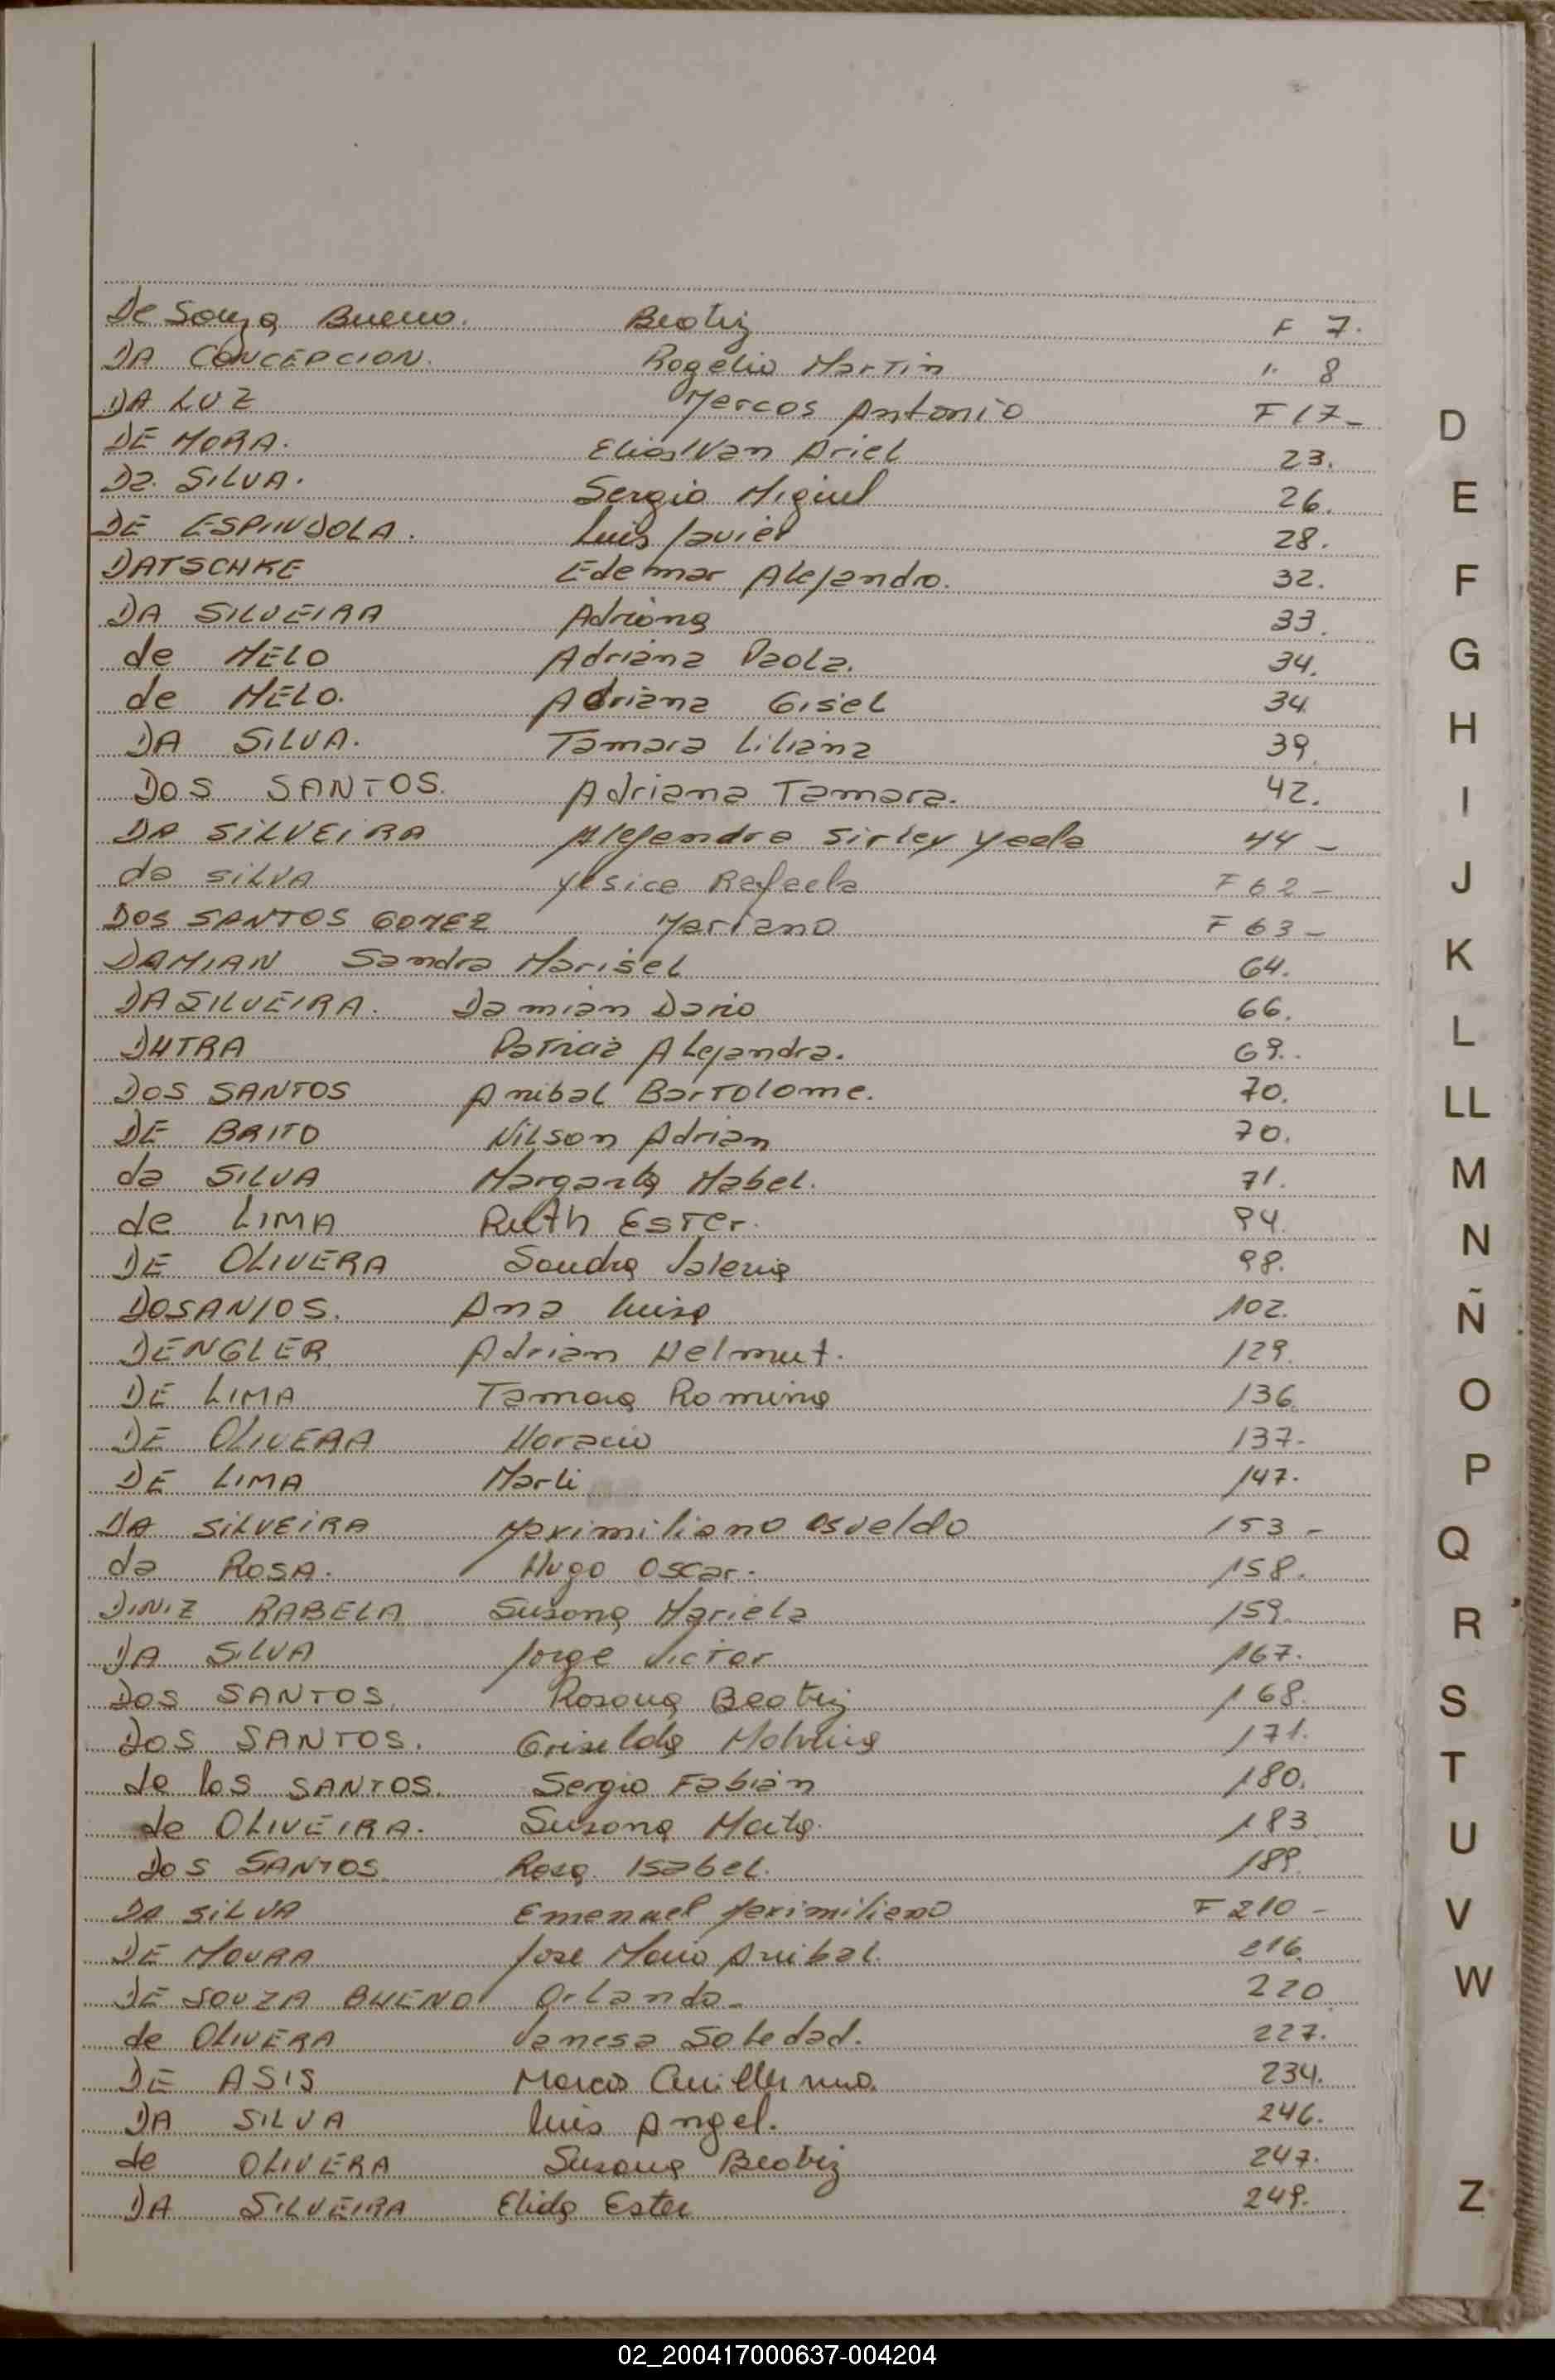 De Souza Bueno. Beatriz F 7.
DA CONCEPCION. Rogelio Martin ". 8
DA LUZ Marcos Antonio F 17-
DE MORA. Elias Ivan Ariel 23.
Da. SILVA. Sergio Miguel 26.
DE ESPINDOLA. Luis Javier 28.
DATSCHKE Edemar Alejandro. 32.
DA SILVEIRA Adriana 33.
de MELO Adriana Paola. 34.
de MELO. Adriana Gisel 34
DA SILVA. Tamara Liliana 39.
DOS SANTOS. Adriana Tamara. 42.
DA SILVEIRA Alejandra Sirley Yaela 44-
da SILVA Yesica Rafaela F 62-
DOS SANTOS GOMEZ Mariano F 63-
DAMIAN Sandra Marisel 64.
DASILVEIRA. Damian Dario 66.
DUTRA Patricia Alejandra. 69..
DOS SANTOS Anibal Bartolome. 70.
DE BRITO Nilson Adrian 70.
da SILVA Margarita Mabel. 71.
de LIMA Ruth Ester. 94.
DE OLIVERA Sandra Valeria 98.
DOSANJOS. Ana Luisa 102.
DENGLER Adrian Helmut. 129.
DE LIMA Tamara Romina 136.
DE OLIVERA Horacio 137.
DE LIMA Marli 147.
DA SILVEIRA Maximiliano Osvaldo 153-
da ROSA. Hugo Oscar. 158.
DINIZ RABELA Susana Mariela 159.
DA SILVA Jorge Victor 167.
DOS SANTOS. Rosana Beatriz 168.
DOS SANTOS. Griselda Malvina 171.
de los SANTOS. Sergio Fabián 180.
de OLIVEIRA. Susana Marta. 183
DOS SANTOS. Rosa Isabel. 189.
DA SILVA Emanuel Maximiliano F 210-
DE MOURA Jose Mario Anibal. 216.
DE SOUZA BUENO Orlando- 220
de OLIVERA Vanesa Soledad. 227.
DE ASIS Marcos Guillermo. 234.
DA SILVA Luis Angel. 246.
de OLIVERA Susana Beatriz 247.
DA SILVEIRA Elida Ester 249.
D
E
F
G
H
I
J
K
L
LL
M
N
Ñ
O
P
Q
R
S
T
U
V
W
Z
02_200417000637-004204